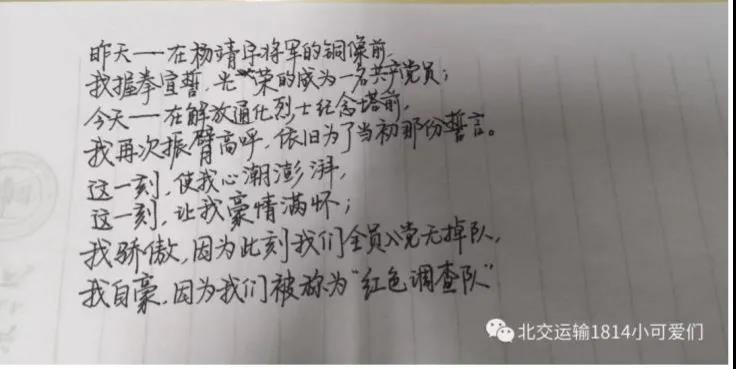 昨天——在杨靖宇将军的铜像前,
我握拳宣誓,光荣的成为一名共产党员;
今天——在解放通化烈士纪念塔前,
我再次振臂高呼,依旧为了当初那份誓言。
这一刻,使我心潮澎湃,
这一刻,让我豪情满怀;
我骄傲,因为此刻我们全员入党无掉队,
我自豪,因为我们被称为“红色调查队”
北交运输1814小可爱们